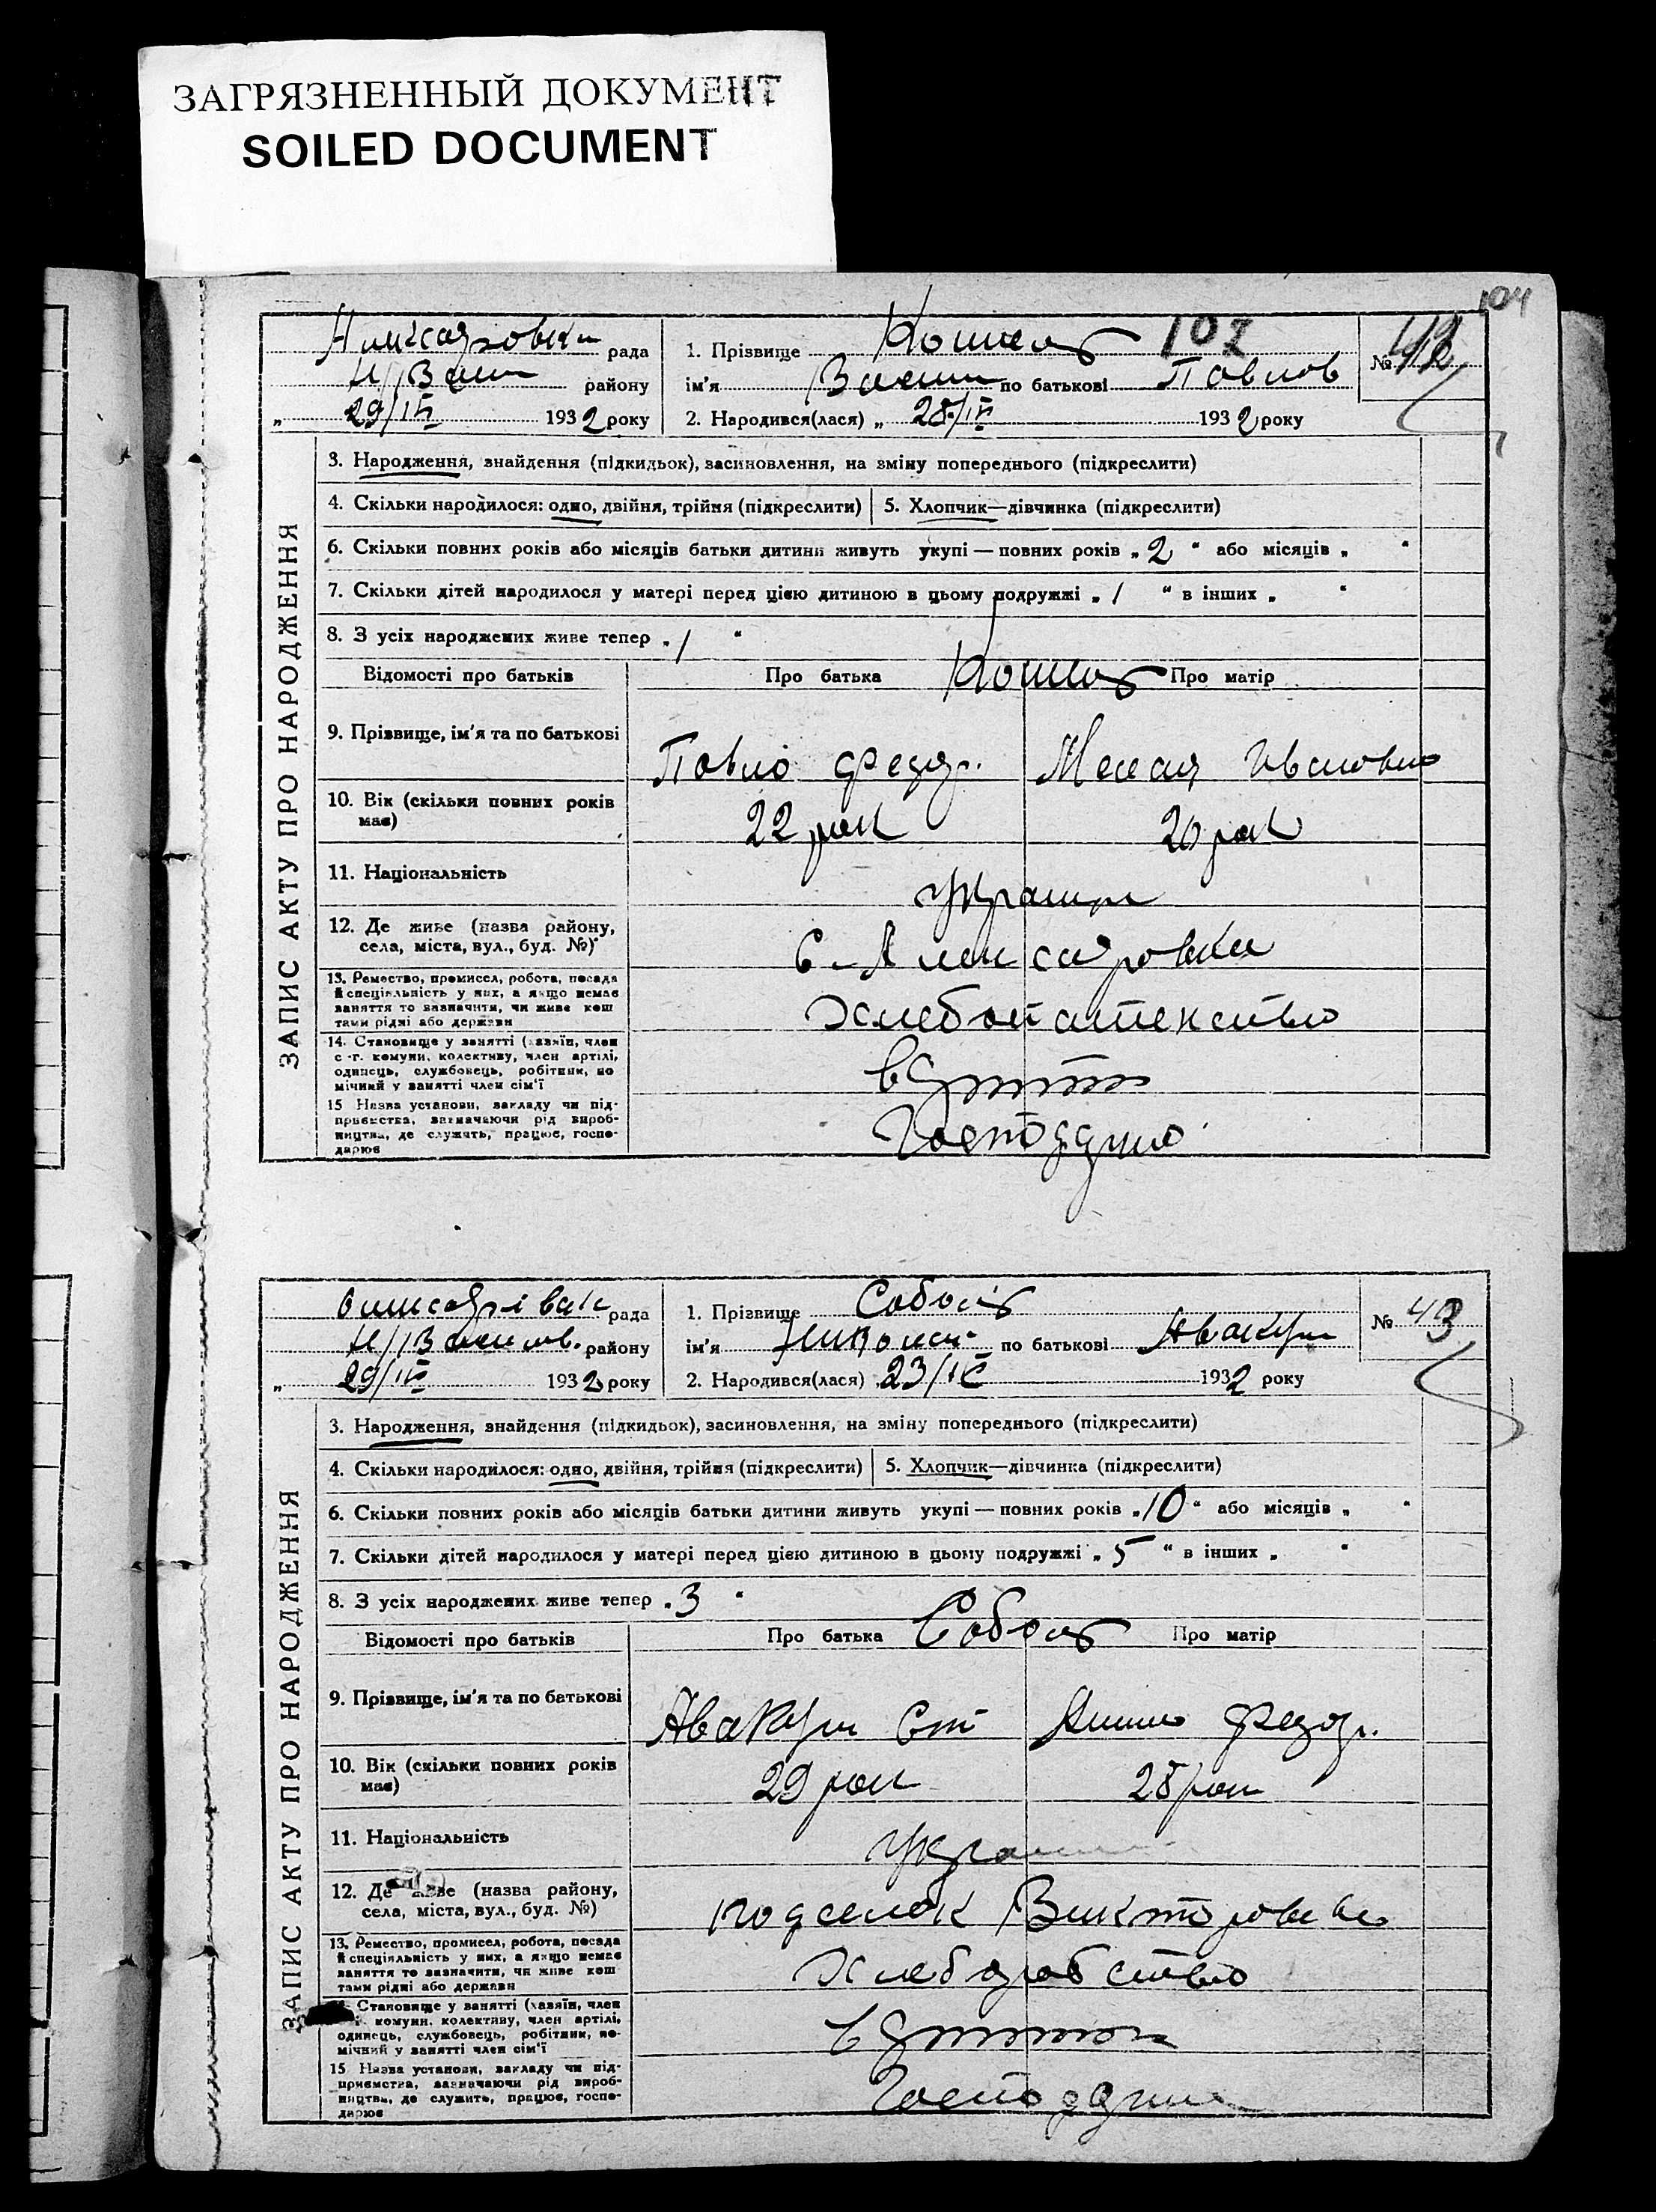 ЗАГРЯЗНЕННЫЙ ДОКУМЕНТ
SOILED DOCUMENT
104
рада
району
„ 29/IV 1932 року
1. Прізвище 102
ім'я по батькові Павлов
2. Народився(лася) „ 28/IV 1932 року
№ 42
ЗАПИС АКТУ ПРО НАРОДЖЕННЯ
3. Народження, знайдення (підкидьок), засиновлення, на зміну попереднього (підкреслити)
4. Скільки народилося: одно, двійня, трійня (підкреслити)
5. Хлопчик—дівчинка (підкреслити)
6. Скільки повних років або місяців батьки дитини живуть укупі — повних років „ 2 “ або місяців „ “
7. Скільки дітей народилося у матері перед цією дитиною в цьому подружжі „ 1 “ в інших „ “
8. З усіх народжених живе тепер „ 1 “
Відомості про батьків Про батька Про матір
9. Прізвище, ім'я та по батькові
Павло Федор. Ивановна
10. Вік (скільки повних років має)
22 рок 20 рок
11. Національність
12. Де живе (назва району, села, міста, вул., буд. №)
С-Александровка
13. Ремество, промисел, робота, посада
й спеціяльність у них, а якщо немає
заняття то зазначити, чи живе кош
тами рідні або держави
14. Становище у занятті (хазяїн, член
с.-г. комуни, колективу, член артілі,
одинець, службовець, робітник, по
мічний у занятті член сім'ї
15 Назва установи, закладу чи під-
приємства, зазначаючи рід вироб-
ництва, де служить, працює, госпо-
дарює
рада
району
„ 29/IV 1932 року
1. Прізвище Соболь
ім'я Николай по батькові Авакум
2. Народився(лася) 23/IV 1932 року
№ 43
ЗАПИС АКТУ ПРО НАРОДЖЕННЯ
3. Народження, знайдення (підкидьок), засиновлення, на зміну попереднього (підкреслити)
4. Скільки народилося: одно, двійня, трійня (підкреслити)
5. Хлопчик—дівчинка (підкреслити)
6. Скільки повних років або місяців батьки дитини живуть укупі — повних років „ 10 “ або місяців „ “
7. Скільки дітей народилося у матері перед цією дитиною в цьому подружжі „ 5 “ в інших „ “
8. З усіх народжених живе тепер „ 3 “
Відомості про батьків Про батька Соболь Про матір
9. Прізвище, ім'я та по батькові
Авакум Ст Федор.
10. Вік (скільки повних років має)
29 рок 28 рок
11. Національність
12. Де живе (назва району, села, міста, вул., буд. №)
подселок Викторовка
13. Ремество, промисел, робота, посада
й спеціяльність у них, а якщо немає
заняття то зазначити, чи живе кош
тами рідні або держави
Хлеборобство
Становище у занятті (хазяїн, член
комуни, колективу, член артілі,
одинець, службовець, робітник, по-
мічний у занятті член сім'ї
15 Назва установи, закладу чи під-
приємства, зазначаючи рід вироб-
ництва, де служить, працює, госпо-
дарює